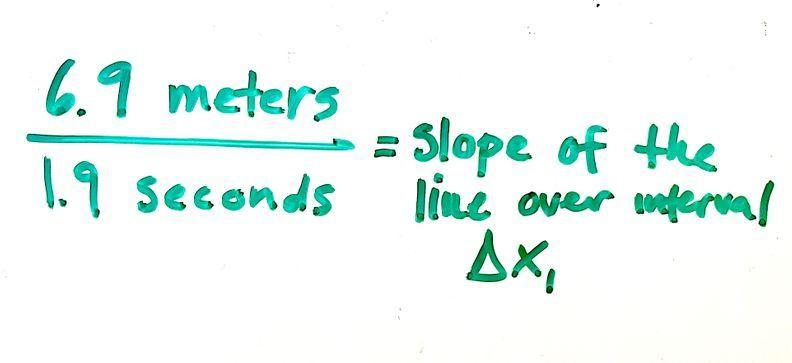 6.9 meters
1.9 seconds
= slope of the
line over interval
Δx₁